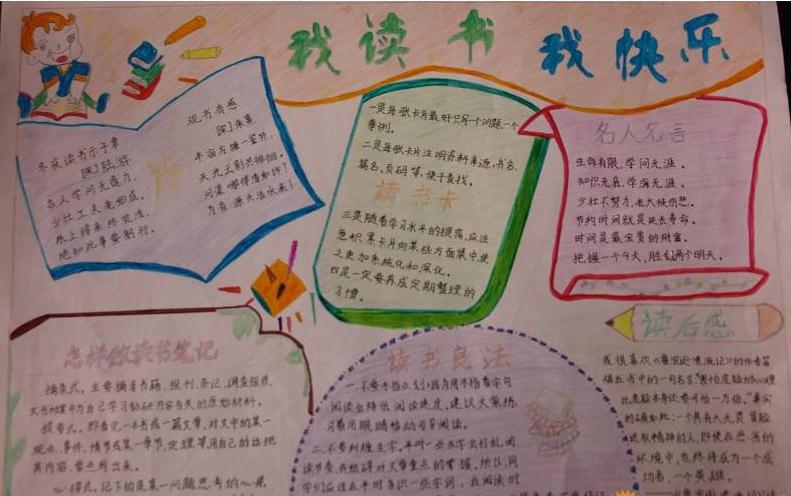 我读书 我快乐
冬夜读书示子聿
[宋]陆游
古人学问无遗力，
少壮工夫老始成。
纸上得来终觉浅，
绝知此事要躬行。
诗
观书有感
[宋]朱熹
半亩方塘一鉴开，
天光云影共徘徊。
问渠哪得清如许？
为有源头活水来！
一是每张卡片最好只写一个问题、一个
事例。
二是每张卡片注明资料来源，书名、
篇名、页码等，便于查找。
读书卡
三是随着学习水平的提高，应注
意积累卡片向某些方面集中，使
之更加系统化和深化。
四是一定要养成定期整理的
习惯。
名人名言
生命有限，学问无涯。
知识无底，学海无涯。
少壮不努力，老大徒伤悲。
节约时间就是延长寿命。
时间是最宝贵的财富。
把握一个今天，胜似两个明天。
怎样做读书笔记
摘录式。主要摘录书籍、报刊、
文书档案中与自己学习钻研内容有关的原始材料。
提要式。即看完一本书或一篇文章，对文中的某一
观点、事件、情节或某一章节、定理等用自己的话把
其内容、要点写出来。
心得式。记下的是某一问题思考的心
读书良法
一、不要手指点划，因为用手指着字句
阅读会降低阅读速度，建议大家练
习着用眼睛移动引导阅读。
二、不要纠缠生字。平时一些生字会打乱阅
读节奏，
读后感
我很喜欢《鲁滨逊漂流记》的作者笛
福在书中的一句名言："害怕危险的心理
比危险本身还要可怕一万倍。"事实
的确如此：一个具有大无畏冒险
进取精神的人，即使在恶劣的
环境中，也终将成为一个成
功者，一个英雄。